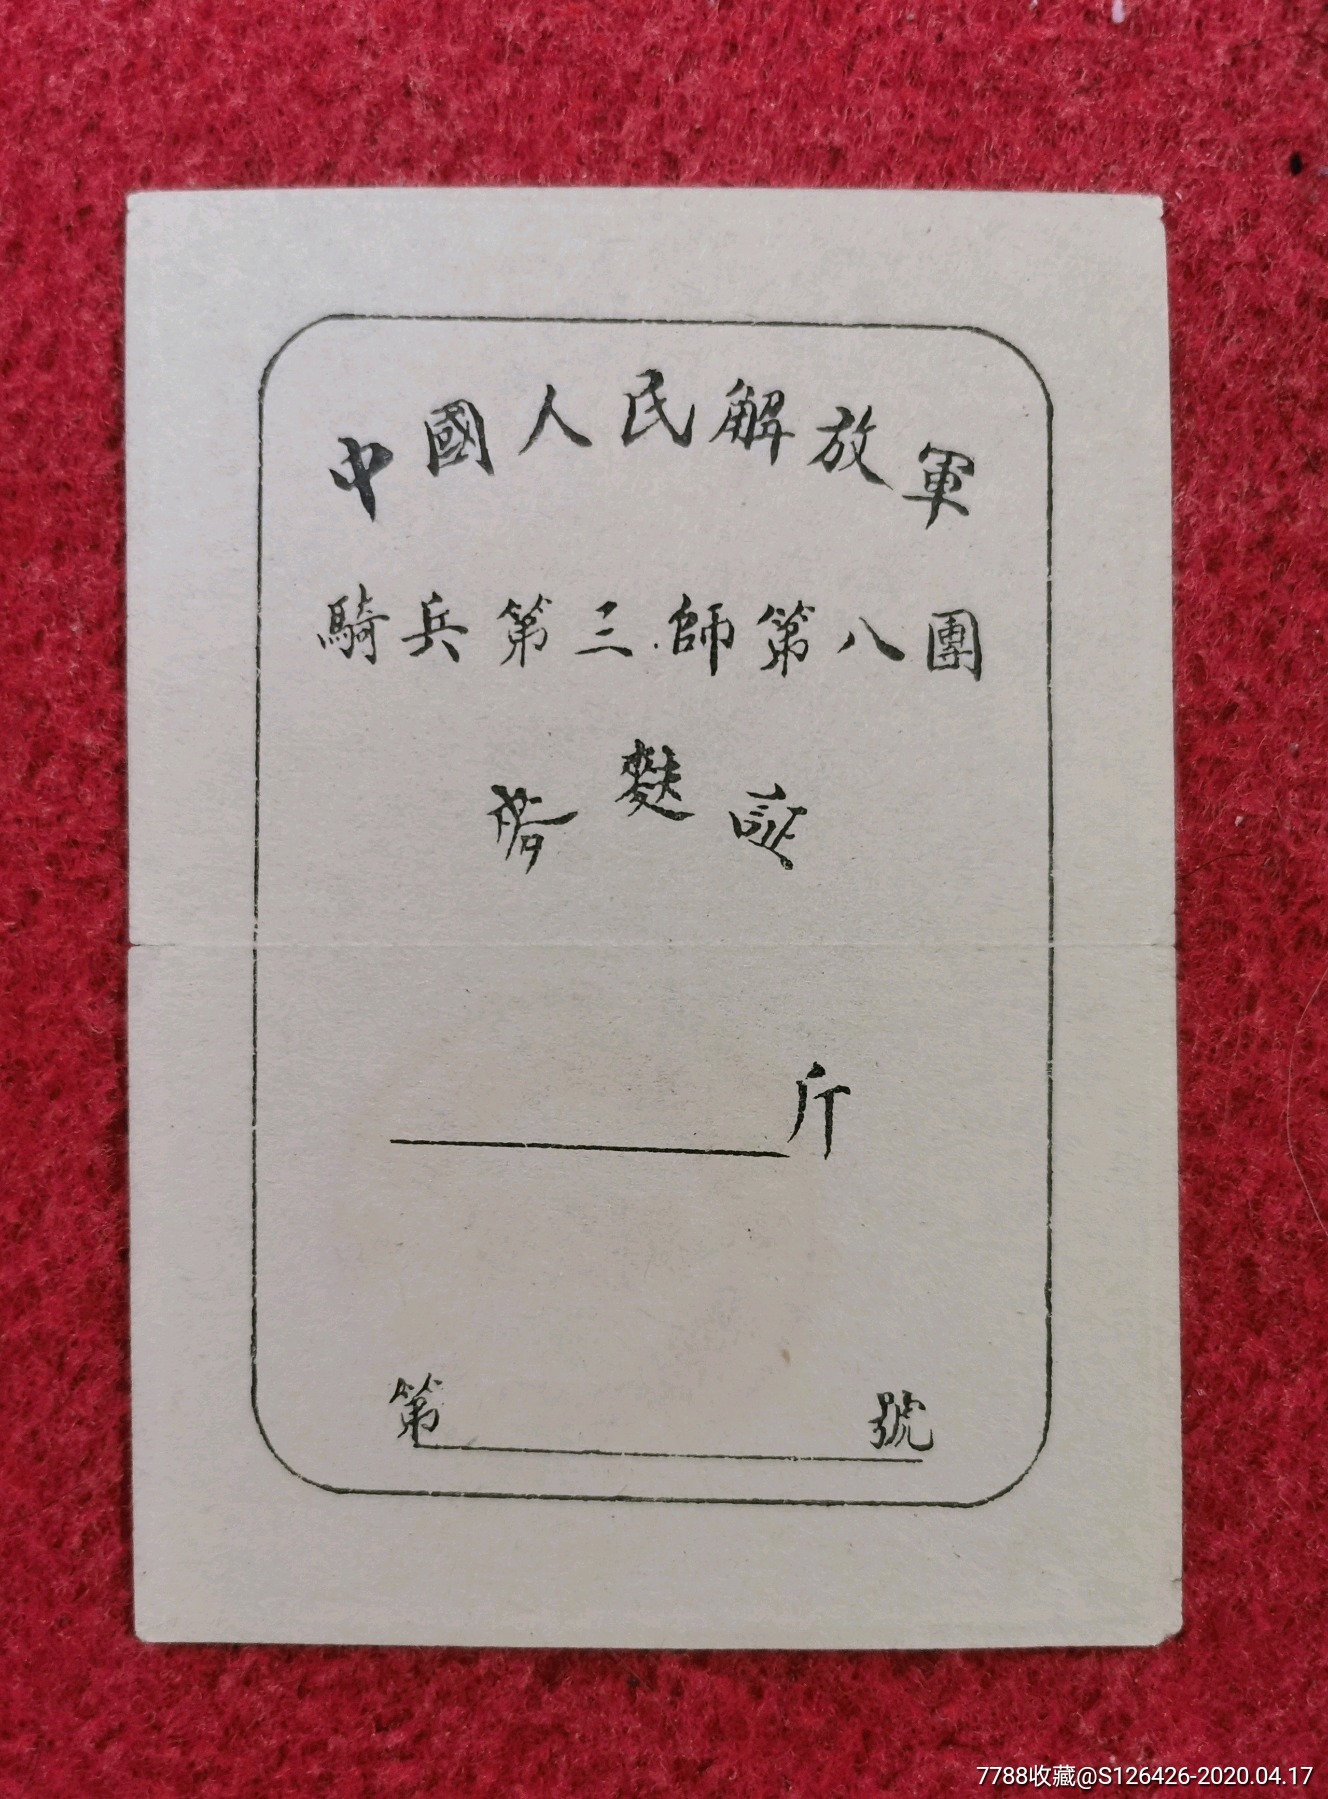 中國人民解放軍
騎兵第三師第八團
麩証
斤
第 號
7788收藏@S126426-2020.04.17